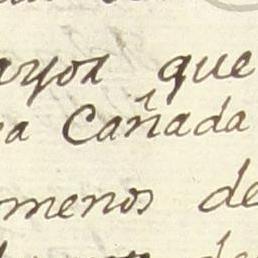 ayor que
a Cañada
menos de